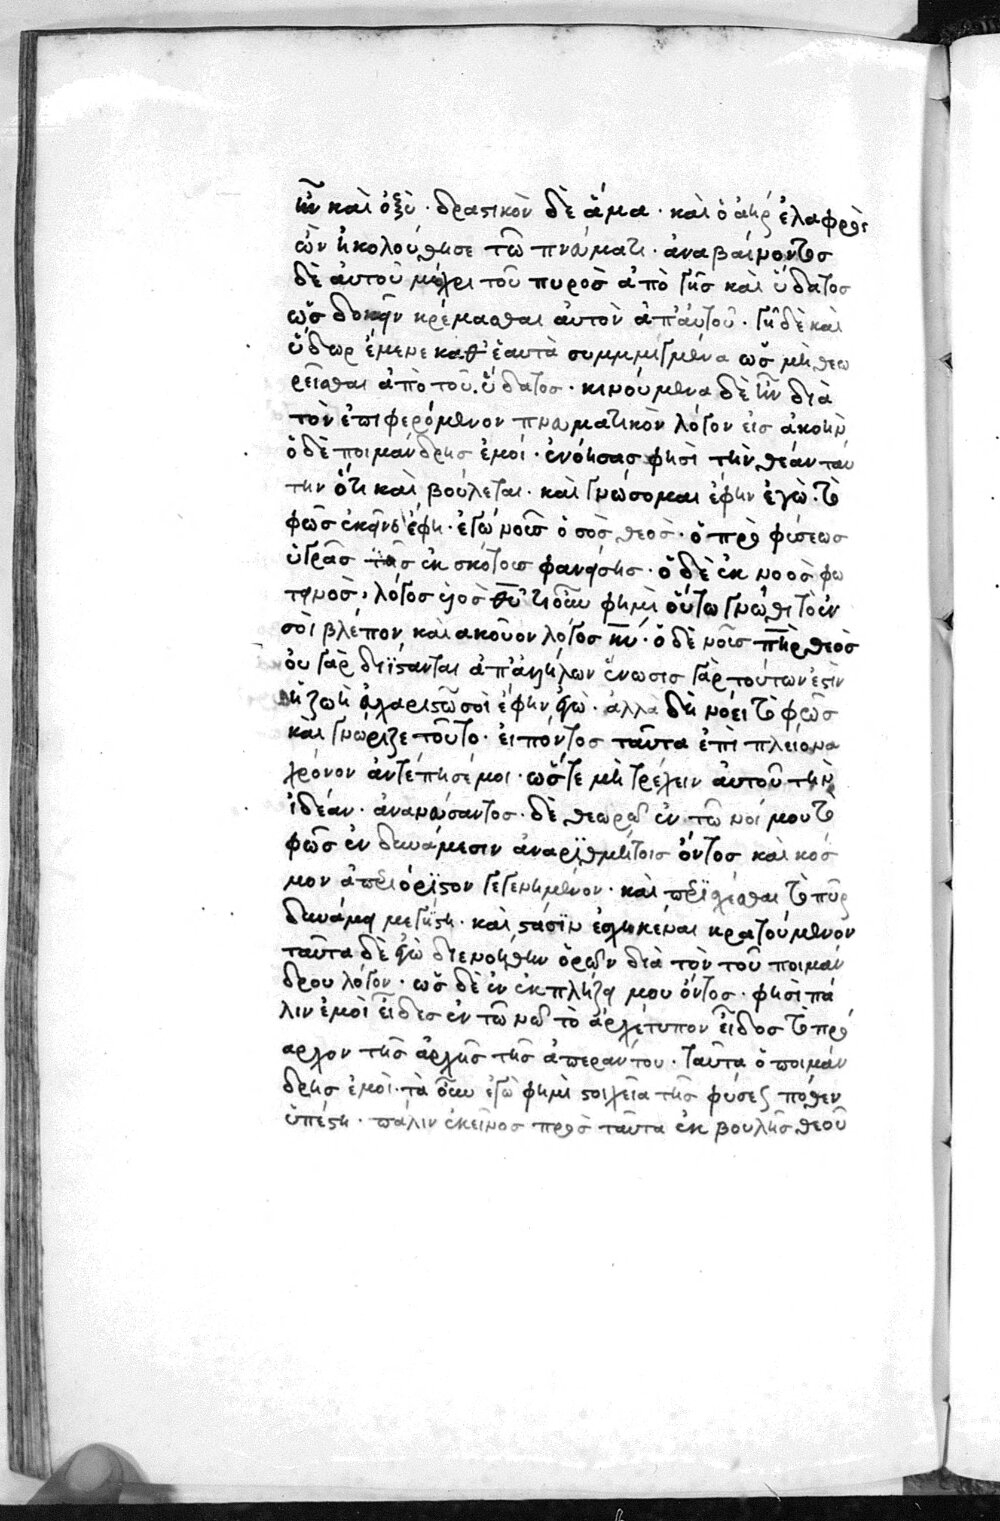 ἦν καὶ ὀξὺ · δραστικὸν δὲ ἅμα · καὶ ὁ ἀὴρ ἐλαφρὸς
ὢν ἠκολούθησε τῶ πνεύματι · ἀναβαίνοντος
δὲ αὐτοῦ μέχρι τοῦ πυρὸς ἀπὸ γῆς καὶ ὕδατος
ὡς δοκεῖν κρέμασθαι αὐτὸν ἀπ' αὐτοῦ · γῆ δὲ καὶ
ὕδωρ ἔμενε καθ' ἑαυτὰ συμμμιγμένα ὡς μὴ θεω
ρεῖσθαι ἀπὸ τοῦ ὕδατος · κινούμενα δὲ ἦν διὰ
τὸν ἐπιφερόμενον πνευματικὸν λόγον εἰς ἀκοὴν
ὁ δὲ ποιμάνδρης ἐμοί · ἐνόησας φησὶ τὴν θέαν ταύ
την ὅτι καὶ βούλεται · καὶ γνώσομαι ἔφην ἐγώ · τὸ
φῶς ἐκεῖνο ἔφη · ἐγὼ νοῦς ὁ σὸς θεὸς · ὁ πρὸ φύσεως
ὑγρᾶς τῆς ἐκ σκότους φανείσης · ὁ δὲ ἐκ νοὸς φω
τεινὸς, λόγος υἱὸς θυ τί οὖν φημὶ οὕτω γνῶθι τὸ ἐν
σοὶ βλέπον καὶ ἀκοῦον λόγος κυ · ὁ δὲ νοῦς πηρ θεὸς
οὐ γὰρ διίστανται ἀπ' ἀλλήλων ἕνωσις γὰρ τούτων ἐστὶν
ἡ ζωὴ εὐχαριστῶ σοὶ ἔφην ἐγὼ · ἀλλὰ δὴ νόει τὸ φῶς
καὶ γνώριζε τοῦτο · εἰπόντος ταῦτα ἐπὶ πλείονα
χρόνον ἀντώπησέ μοι · ὥστε μὲ τρέμειν αὐτοῦ τὴν
ἰδέαν · ἀνανεύσαντος · δὲ θεωρῶ ἐν τῶ νοί μου τὸ
φῶς ἐν δυνάμεσιν ἀναριθμήτοις ὄντος καὶ κόσ
μον ἀπεριόριστον γεγενημένον · καὶ περιίσχεσθαι τὸ πῦρ
δυνάμει μεγίστη · καὶ στάσιν ἐσχηκέναι κρατούμενον
ταῦτα δὲ ἐγὼ διενοήθην ὁρῶν διὰ τὸν τοῦ ποιμάν
δρου λόγον · ὡς δὲ ἐν ἐκπλήξει μου ὄντος · φησὶ πά
λιν ἐμοὶ εἶδες ἐν τῶ νῶ τὸ ἀρχέτυπον εἶδος τὸ πρό
αρχον τῆς ἀρχῆς τῆς ἀπεράντου · ταῦτα ὁ ποιμάν
δρης ἐμοί · τὰ οὖν ἐγὼ φημὶ στοιχεῖα τῆς φύσεως πόθεν
ὑπέστη · πάλιν ἐκεῖνος πρὸς ταῦτα ἐκ βουλῆς θεοῦ